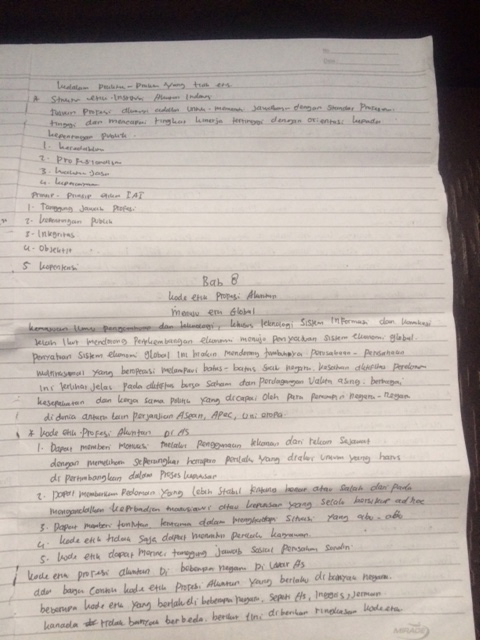 kedalam praktek - praktek yang tidak etis
* Struktur etik - Instansi Akuntan Indonesia
Tujuan profesi akuntansi adalah untuk memenuhi tanggung jawab dengan standar profesional
tinggi dan mencapai tingkat kinerja tertinggi dengan orientasi kepada
kepentingan publik.
1. kredibilitas
2. profesionalisme
3. kualitas jasa
4. kepercayaan
prinsip - prinsip etika IAI
1. Tanggung jawab profesi
2. kepentingan publik
3. Integritas
4. Objektif
5 kopentensi
Bab 8
kode etik Profesi Akuntan
menuju era Global
kemajuan ilmu pengetahuan dan teknologi, khusus teknologi Sistem Informasi dan
telah ikut mendorong perkembangan ekonomi menuju penyatuan sistem ekonomi global.
penyatuan sistem ekonomi global ini makin mendorong tumbuhnya perusahaan - perusahaan
multinasional yang beroperasi melampaui batas - batas suatu negara. kesatuan aktivitas perekonomian
ini terlihat jelas pada aktivitas bursa saham dan perdagangan valuta asing. berbagai
kesepakatan dan kerja sama politik yang dicapai oleh para pemimpin negara - negara
di dunia antara lain perjanjian Asean, APEC, uni eropa.
* kode etik profesi akuntan di AS
1. Dapat memberi motivasi melalui penggunaan tekanan dari rekan sejawat
dengan memelihara seperangkat harapan perilaku yang diakui umum yang harus
di pertimbangkan dalam proses keputusan
2. Dapat memberikan pedoman yang lebih stabil tentang benar atau salah dari pada
mengandalkan kepribadian manusiawi atau keputusan yang selalu bersikap ad hoc
3. Dapat memberi tuntutan terutama dalam menghadapi situasi yang abu - abu
4. kode etik tidak saja dapat menuntun perilaku karyawan.
5. kode etik dapat merinci tanggung jawab sosial perusahaan sendiri
kode etik profesi akuntan di beberapa negara di luar AS
ada banyak contoh kode etik Profesi Akuntan yang berlaku di beberapa negara.
beberapa kode etik yang berlaku di beberapa negara, seperti AS, Inggris, Jerman
kanada tidak banyak berbeda. berikut ini diberikan ringkasan kode etik
MIRAGE